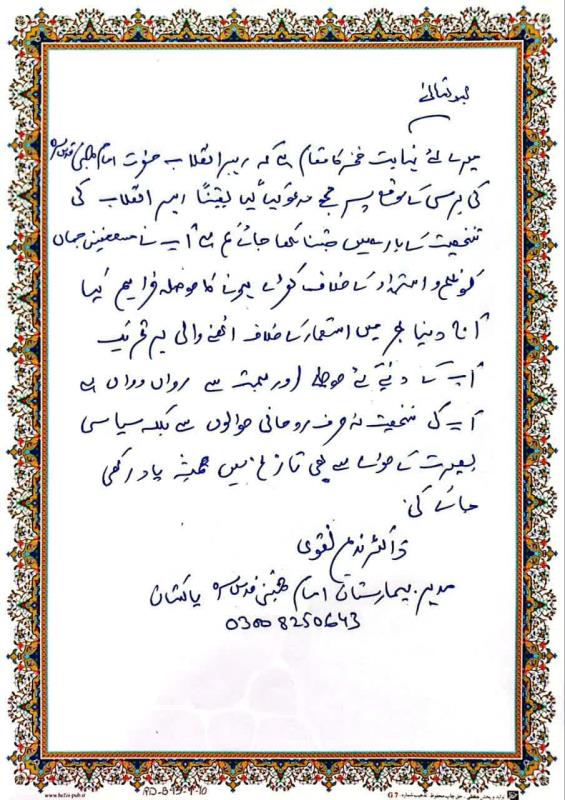 بسمہ تعالیٰ
میرے لئے نہایت فخر کا مقام ہے کہ رہبر انقلاب حضرت امام خمینی قدس سرہ
کی برسی کے موقع پر مجھے مدعو کیا گیا یقیناً رہبر انقلاب کی
شخصیت کے بارے میں جتنا لکھا جائے کم ہے آپ نے مستضعفین جہاں
کو ظلم و استبداد کے خلاف کھڑے ہونے کا حوصلہ فراہم کیا
آج دنیا بھر میں استعمار کے خلاف اٹھنے والی ہر تحریک
آپ کے دئیے گئے حوصلے اور ہمت سے رواں دواں ہے
آپ کی شخصیت نہ صرف روحانی حوالوں سے بلکہ سیاسی
بصیرت کے حوالے سے بھی تاریخ میں ہمیشہ یاد رکھی
جائے گی
ڈاکٹر ندیم نقوی
مدیر بیمارستان امام خمینی قدس سرہ پاکستان
0300 8250643
www.hafiz-pub.ir
G 7